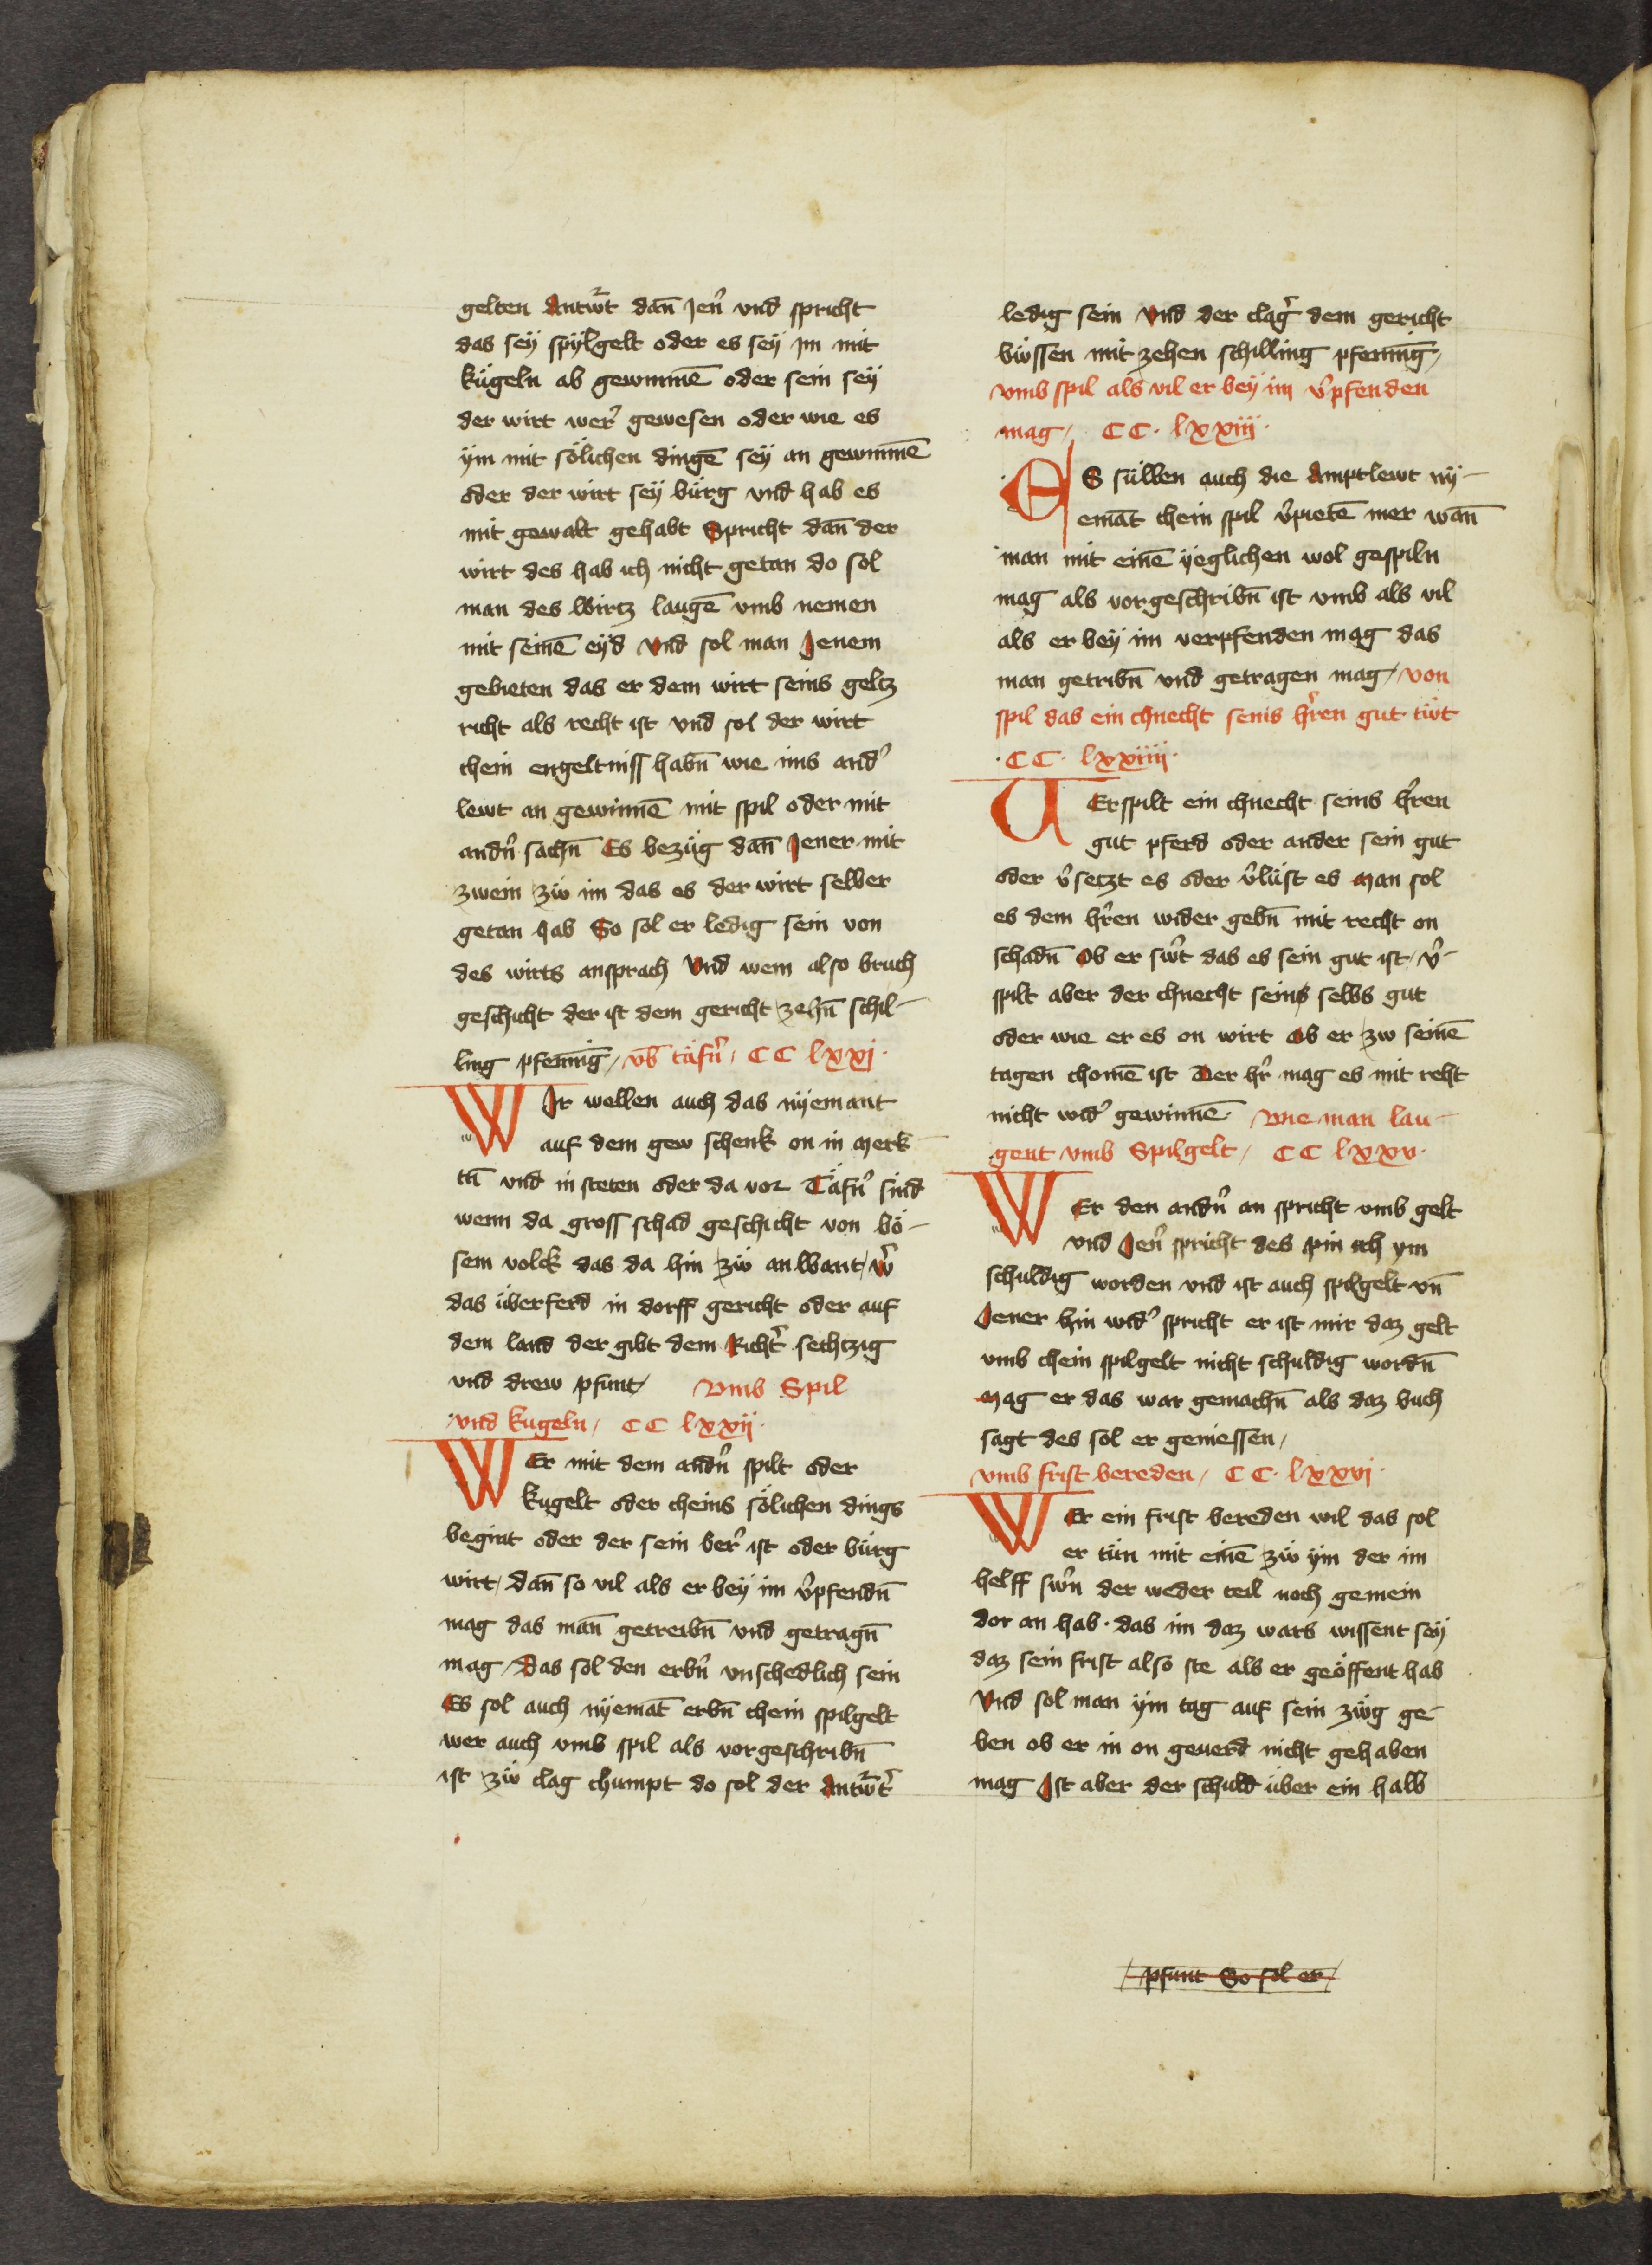 gelten Antwrt dan̄ Jen̉ vnd spricht
das seÿ spÿlgelt oder es seÿ im mit
kügeln ab gewinnē oder sein seÿ
der wirt wer̉ gewesen oder wie es
ÿm mit sölichen dingē seÿ an gewinnē
oder der wirt seÿ bürg vnd hab es
mit gewalt gehabt Spricht dan̄ der
wirt des hab ich nicht getan do sol
man des wirtz laugē vmb nemen
mit seinē eÿd Vnd sol man Jenem
gebieten das er dem wirt seins geltz
richt als recht ist vnd sol der wirt
chein engeltniss habn̄ wie ims and̉
lewt an gewinnē mit spil oder mit
andn̉ sachn̄ Es bezüg dan̄ Jener mit
zwein zw̄ im das es der wirt selber
getan hab So sol er ledig sein von
des wirts ansprach Vnd wem also bruch
geschicht der ist dem gericht zehn̄ schil-
ling pfennīg / vb̄ täfn̉ / CC lxxj ·
WIr wellen auch das nÿemant
auf dem gew schenk on in Merk-
tn̄ vnd in steten oder da vor Täfn̉ sind
wenn da gross schad geschicht von bö-
sem volck das da hin zw̄ anwant / w̉
das überferd in dorff gericht oder auf
dem land der gibt dem Richt̉ sechtzig
vnd drew pfunt / Vmb Spil
vnd kugeln / CC lxxij ·
WEr mit dem andn̉ spilt oder
kugelt oder cheins sölichen dings
begint oder der sein ber̉ ist oder bürg
wirt / dan̄ so vil als er beÿ im v̉pfendn̄
mag das man̄ getreibn̄ vnd getragn̄
mag / Das sol den erbn̄ vnschedlich sein
Es sol auch nÿemāt erbn̄ chein spilgelt
wer auch vmb spil als vorgeschribn̄
ist zw̄ clag chumpt do sol der Antwrt̉
ledig sein Vnd der clag̉ dem gericht
bw̄ssen mit zehen schilling pfennīg /
vmb spil als vil er beÿ im v̉pfenden
mag / CC · lxxiij ·
ES süllen auch die Amptlewt nÿ-
emāt chein spil v̉pietē mer wan̄
man mit einē ÿeglichen wol gespiln
mag als vorgeschribn̄ ist vmb als vil
als er beÿ im verpfenden mag das
man getribn̄ vnd getragen mag / von
spil das ein chnecht seins hr̉en gut tw̄t
· CC · lxxiiij ·
VErspilt ein chnecht seins hr̉en
gut pferd oder ander sein gut
oder v̉setzt es oder v̉lüst es Man sol
es dem hr̉en wider gebn̄ mit recht on
schadn̄ Ob er sw̉t das es sein gut ist / v̉-
spilt aber der chnecht seins selbs gut
oder wie er es on wirt Ob er zw seinē
tagen chomē ist Der hr̉ mag es mit reht
nicht wid̉ gewinnē Wie man lau-
gent vmb Spilgelt / CC lxxv ·
WEr den andn̉ an spricht vmb gelt
vnd Jen̉ spricht des pin ich ym
schuldig worden vnd ist auch spilgelt vn̄
Jener hin wid̉ spricht er ist mir daz gelt
vmb chein spilgelt nicht schuldig wordn̄
Mag er das war gemachn̄ als daz buch
sagt des sol er geniessen /
vmb frist bereden / CC · lxxvj ·
WEr ein frist bereden wil das sol
er tün mit einē zw̄ ÿm der im
helff sw̉n der weder teil noch gemein
dor an hab · das im daz wars wissent seÿ
daz sein frist also ste als er geöffent hab
Vnd sol man ÿm tag auf sein zw̄g ge-
ben ob er in on geuerd nicht gehaben
mag Ist aber der schuld über ein halb
pfunt So sol er